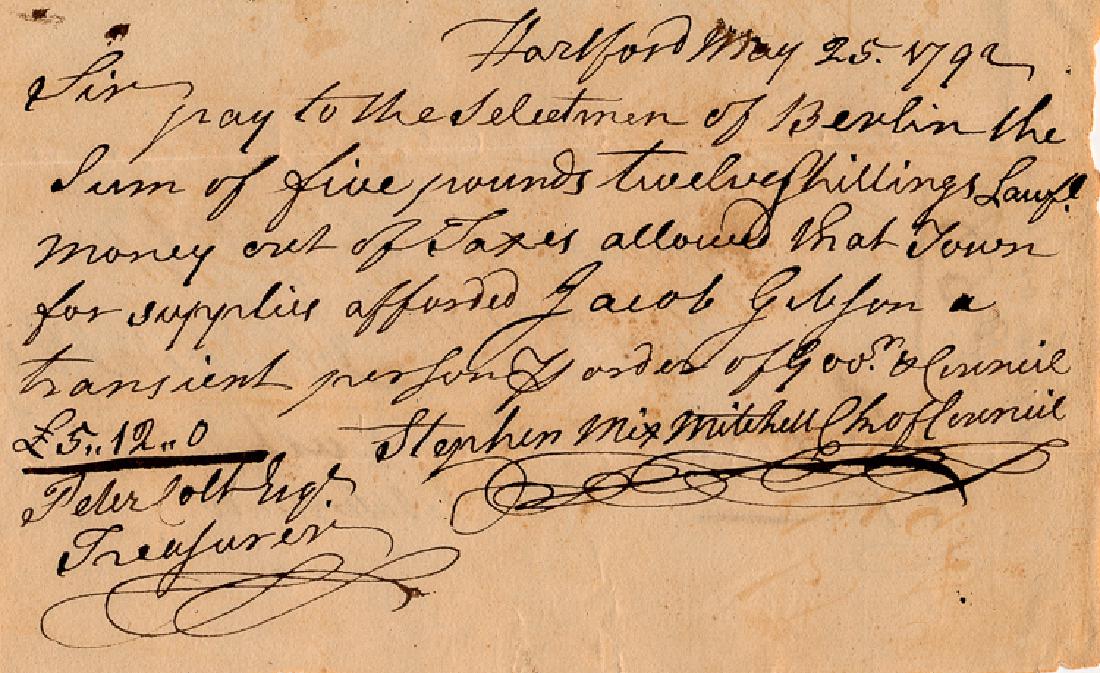 Hartford May 25. 1792
Sir
pay to the Selectmen of Berlin the
Sum of five pounds twelve Shillings Lawfl.
money out of Taxes allowed that Town
for supplies afforded Jacob Gibson a
transient person ⅌ order of Govr. & Council
£5,,12,,0 Stephen Mix Mitchell Ck of Council
Peter Colt Esqr.
Treasurer